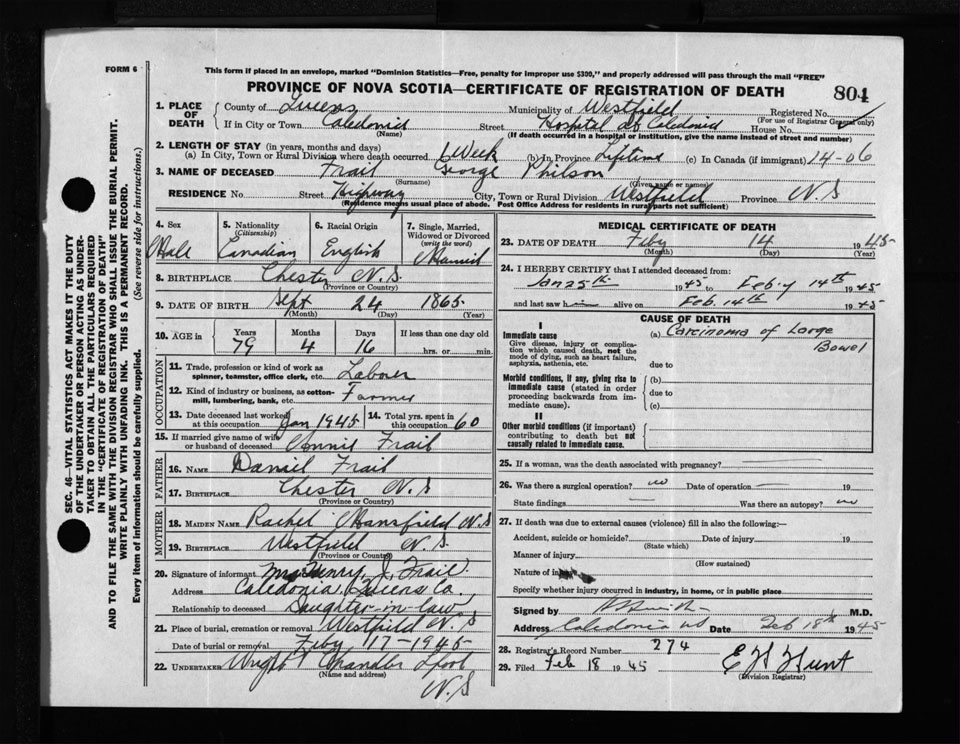 FORM 6
This form if placed in an envelope, marked "Dominion Statistics—Free, penalty for improper use $300," and properly addressed will pass through the mail "FREE"
PROVINCE OF NOVA SCOTIA—CERTIFICATE OF REGISTRATION OF DEATH
804
1. PLACE OF DEATH
County of Queens Municipality of Westfield Registered No.
(For use of Registrar General only)
If in City or Town Caledonia Street Hospital of Caledonia House No.
(Name) (If death occurred in a hospital or institution, give the name instead of street and number)
2. LENGTH OF STAY (in years, months and days)
(a) In City, Town or Rural Division where death occurred 1 Week (b) In Province Lifetime (c) In Canada (if immigrant) 14-06
3. NAME OF DECEASED Frail George Philson
(Surname) (Given name or names)
RESIDENCE No Street Highway City, Town or Rural Division Westfield Province N.S
(Residence means usual place of abode. Post Office Address for residents in rural parts not sufficient)
4. Sex
Male
5. Nationality
(Citizenship)
Canadian
6. Racial Origin
English
7. Single, Married, Widowed or Divorced
(write the word)
Married
8. BIRTHPLACE Chester N.S.
(Province or Country)
9. DATE OF BIRTH Sept 24 1865
(Month) (Day) (Year)
10. AGE in
Years Months Days If less than one day old
79 4 16 hrs. or min.
OCCUPATION
11. Trade, profession or kind of work as spinner, teamster, office clerk, etc. Laborer
12. Kind of industry or business, as cotton-mill, lumbering, bank, etc. Farmer
13. Date deceased last worked at this occupation Jan 1945
14. Total yrs. spent in this occupation 60
15. If married give name of wife or husband of deceased Annie Frail
FATHER
16. NAME Daniel Frail
17. BIRTHPLACE Chester N.S
(Province or Country)
MOTHER
18. MAIDEN NAME Rachel Mansfield N.S
19. BIRTHPLACE Westfield N.S.
(Province or Country)
20. Signature of informant Mrs Henry J. Frail.
Address Caledonia, Queens Co.
Relationship to deceased Daughter-in-law
21. Place of burial, cremation or removal Westfield N.S
Date of burial or removal Feby 17-1945
22. UNDERTAKER Wright Chandler Lpool
(Name and address)
N.S
MEDICAL CERTIFICATE OF DEATH
23. DATE OF DEATH Feby 14 1945
(Month) (Day) (Year)
24. I HEREBY CERTIFY that I attended deceased from:
Jan 25th 1945 to Feb'y 14th 1945
and last saw h alive on Feb. 14th 1945
CAUSE OF DEATH
I
Immediate cause
Give disease, injury or complication which caused death, not the mode of dying, such as heart failure, asphyxia, asthenia, etc.
(a) Carcinoma of Large
Bowel
due to
Morbid conditions, if any, giving rise to immediate cause (stated in order proceeding backwards from immediate cause).
(b)
due to
(c)
II
Other morbid conditions (if important) contributing to death but not causally related to immediate cause.
25. If a woman, was the death associated with pregnancy?
26. Was there a surgical operation? no Date of operation 19
State findings Was there an autopsy? no
27. If death was due to external causes (violence) fill in also the following:—
Accident, suicide or homicide? Date of injury 19
(State which)
Manner of injury
(How sustained)
Nature of injury
Specify whether injury occurred in industry, in home, or in public place
Signed by M.D.
Address Caledonia NS Date Feb 18th 1945
28. Registrar's Record Number 274
29. Filed Feb 18 1945 E H Hunt
(Division Registrar)
SEC. 46—VITAL STATISTICS ACT MAKES IT THE DUTY
OF THE UNDERTAKER OR PERSON ACTING AS UNDER-
TAKER TO OBTAIN ALL THE PARTICULARS REQUIRED
IN THE "CERTIFICATE OF REGISTRATION OF DEATH"
AND TO FILE THE SAME WITH THE DIVISION REGISTRAR WHO SHALL ISSUE THE BURIAL PERMIT.
WRITE PLAINLY WITH UNFADING INK. THIS IS A PERMANENT RECORD.
Every item of information should be carefully supplied. (See reverse side for instructions.)